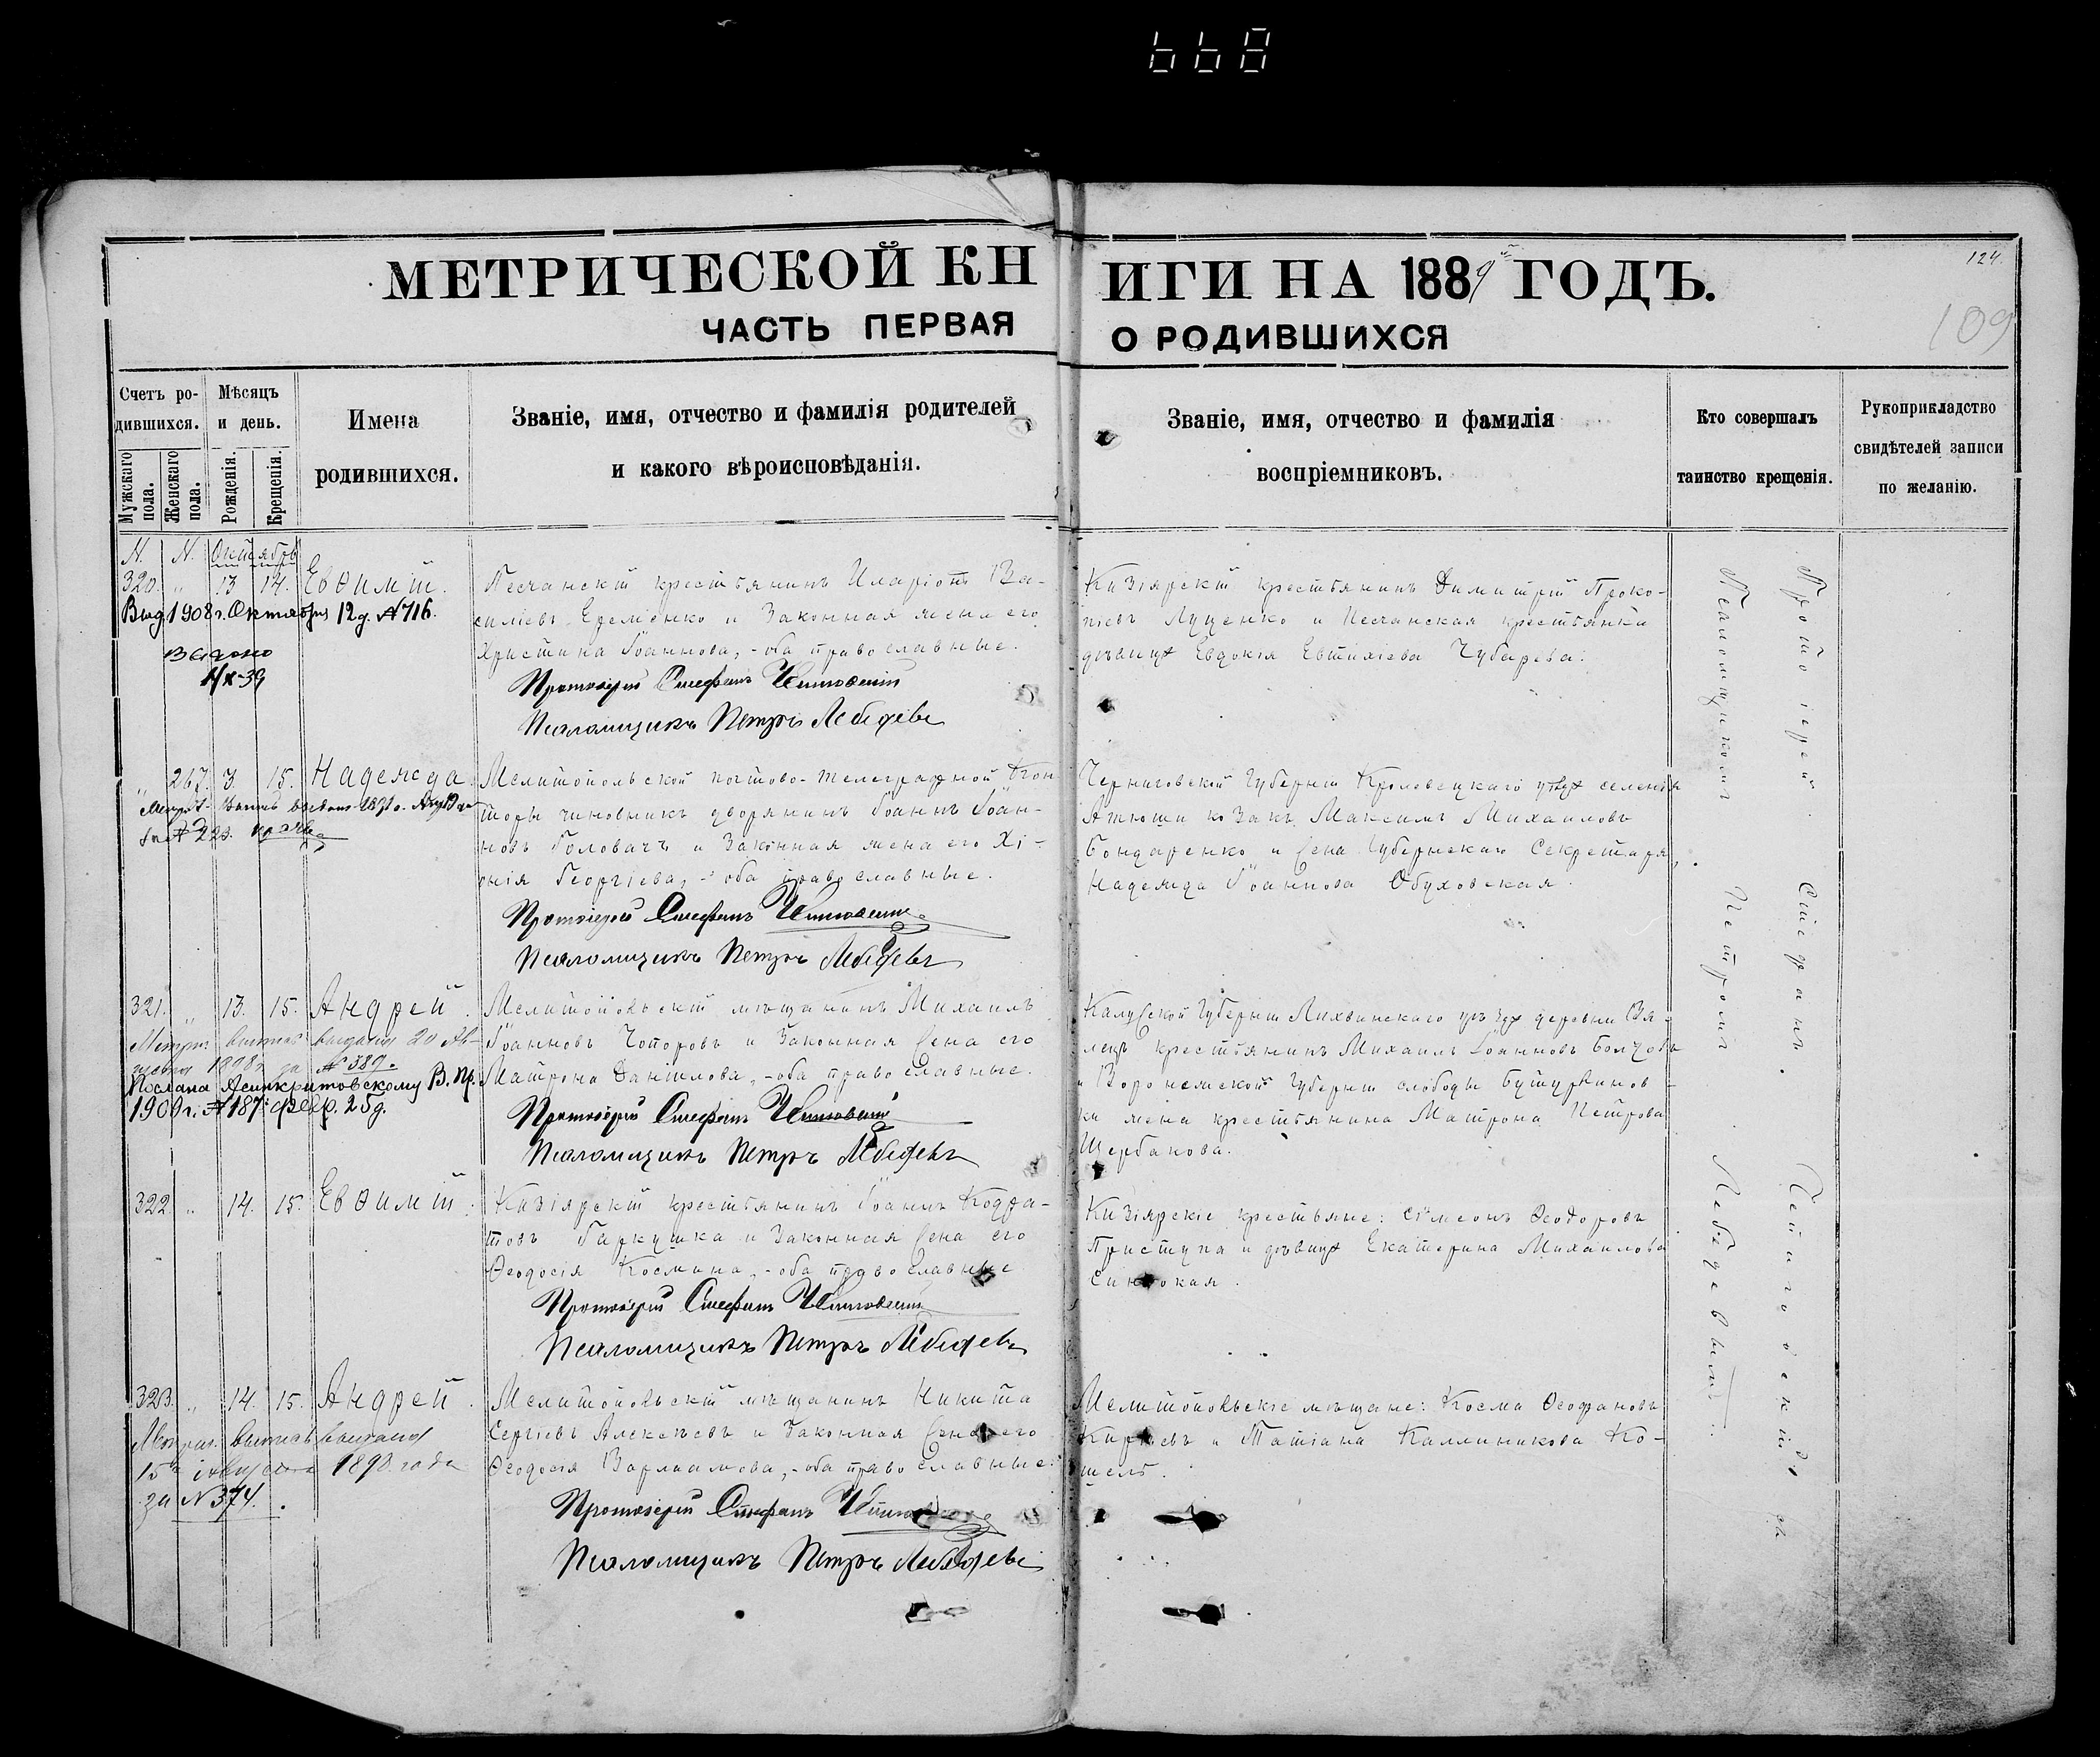 668
МЕТРИЧЕСКОЙ КН
ИГИ НА 1889й ГОДЪ.
124.
ЧАСТЬ ПЕРВАЯ
О РОДИВШИХСЯ
109
Счетъ ро-
дившихся.
Мужскаго пола.
Женскаго пола.
Мѣсяцъ
и день.
Рожденія.
Крещенія.
Имена
родившихся.
Званіе, имя, отчество и фамилія родителей
и какого вѣроисповѣданія.
Званіе, имя, отчество и фамилія
воспріемниковъ.
Кто совершалъ
таинство крещенія.
Рукоприкладство
свидѣтелей записи
по желанію.
N. N. Октябрь
320. " 13 14. Евѳимій.
Выд. 1908 г. Октября 12 д. № 716.
Песчанскій крестьянинъ Иларіонъ Ва-
силіевъ Еременко и законная жена его
Христина Іоаннова, - оба православные.
Протоіерей Стефанъ
Псаломщикъ Петръ Лебедевъ
Кизіярскій крестьянинъ Димитрій Проко-
піевъ Луценко и Песчанская крестьянка
дѣвица Евдокія Евтихіева Чубарева.
" 267. 3. 15. Надежда.
№ 223.
Мелитопольской почтово-телеграфной кон-
торы чиновникъ дворянинъ Іоаннъ Іоан-
новъ Головачъ и законная жена его Хі-
онія Георгіева, - оба православные.
Протоіерей Стефанъ
Псаломщикъ Петръ Лебедевъ
Черниговской губерніи Кролевецкаго уѣзда селенія
Атюши козакъ Максимъ Михаиловъ
Бондаренко и жена Губернскаго Секретаря,
Надежда Іоаннова Обуховская.
321. " 13. 15. Андрей.
Метрич. выпись выдана 20 Ав-
густа 1898 г. за № 389.
Послана Асинкритовскому В. Пр.
1909 г. № 187. февр. 25 д.
Мелитопольскій мѣщанинъ Михаилъ
Іоанновъ Чоторовъ и законная жена его
Матрона Даніилова, - оба православные.
Протоіерей Стефанъ
Псаломщикъ Петръ Лебедевъ
Калужской губерніи Лихвинскаго уѣзда деревни
крестьянинъ Михаилъ Іоанновъ
и Воронежской губерніи слободы Бутурлинов-
ки жена крестьянина Матрона Петрова
Щербакова.
322. " 14. 15. Евѳимій.
Кизіярскій крестьянинъ Іоаннъ Кодра-
товъ Гаркушка и законная жена его
Ѳеодосія Космина, - оба православные
Протоіерей Стефанъ
Псаломщикъ Петръ Лебедевъ
Кизіярскіе крестьяне: Сімеонъ Ѳеодоровъ
Приступа и дѣвица Екатерина Михаилова
323. " 14. 15. Андрей.
Метрич. выпись выдана
15 1890 года
за № 374.
Мелитопольскій мѣщанинъ Никита
Сергіевъ Алексѣевъ и законная жена его
Ѳеодосія Варлаамова, - оба православные.
Протоіерей Стефанъ
Псаломщикъ Петръ Лебедевъ
Мелитопольскіе мѣщане: Косма Ѳеофановъ
и Татіана Каллиникова Ко-
шель.
Протоіерей Стефанъ
Псаломщикъ Петромъ Лебедевымъ.